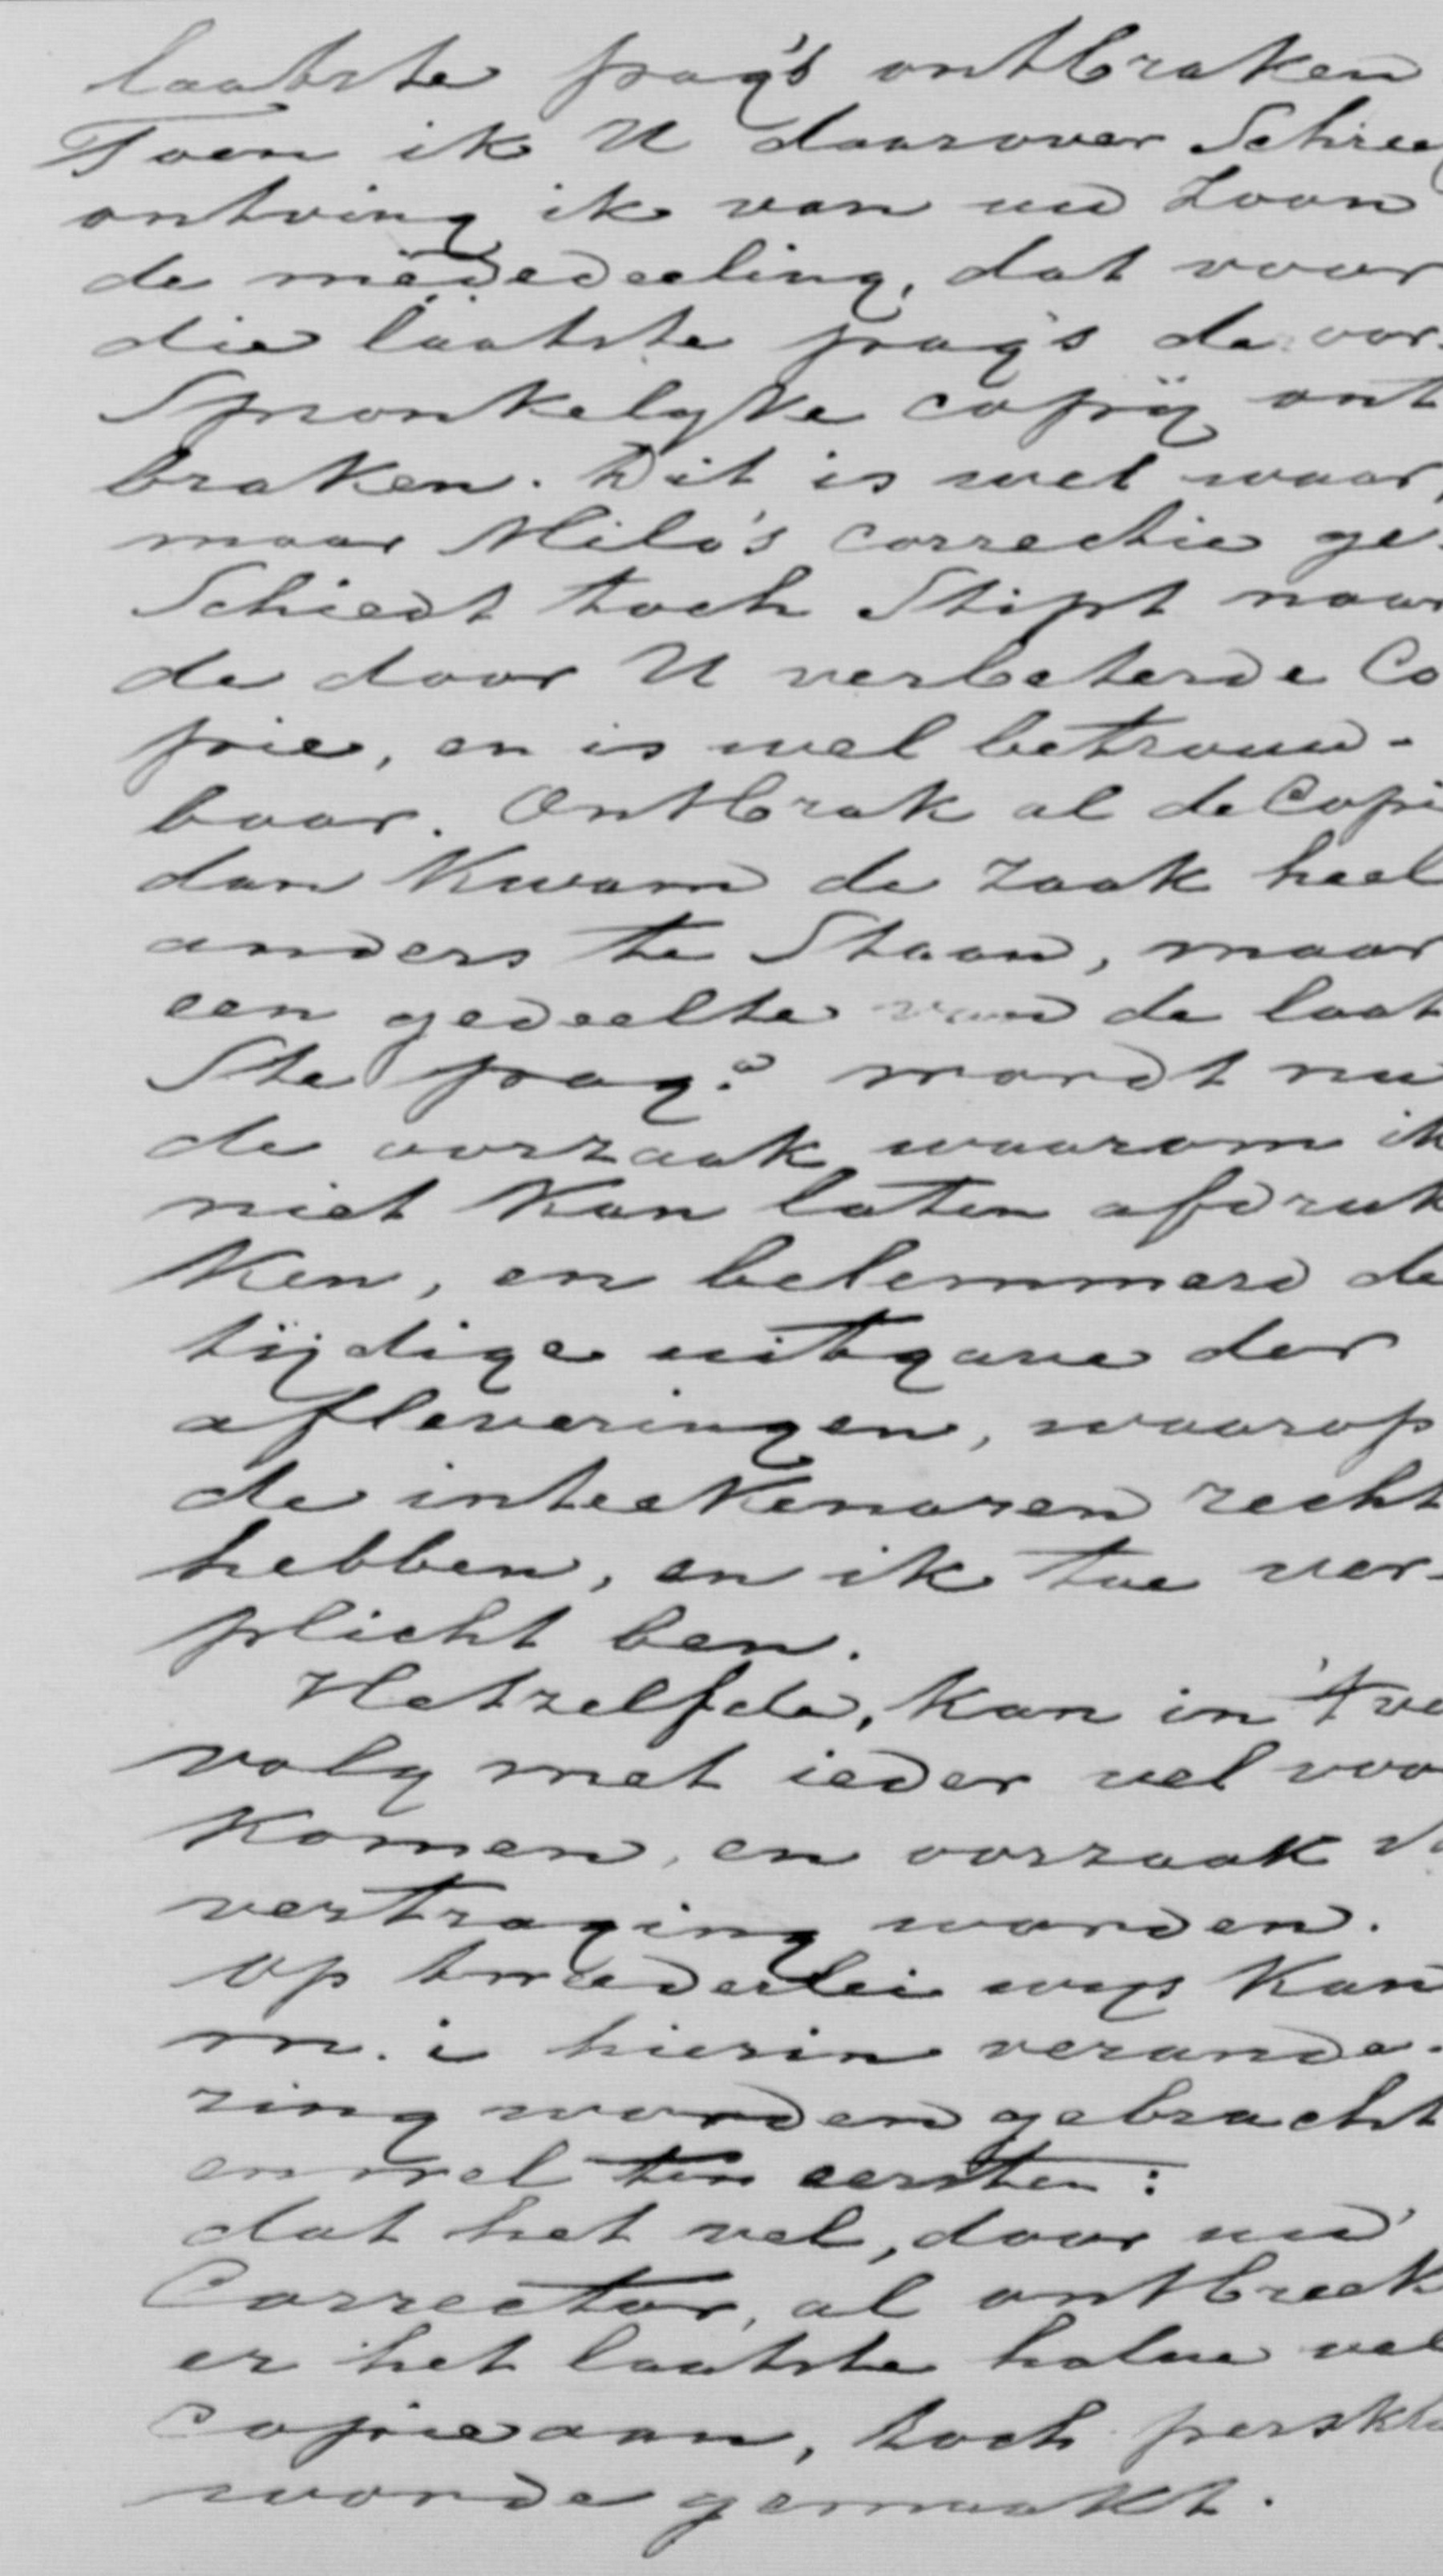 laatste pag's ontbraken
Toen ik U daarover Schree
ontving ik van uw Zoon
de mededeeling, dat voor
die laatste pag's de oor-
Spronkelyke copij ont
braken. Dit is wel waar,
maar Milo's correctie ge-
Schiedt toch Stipt naar
de door U verbeterde Co
pie, en is wel betrouw-
baar. Ontbrak al de Copi
dan Kwam de zaak heel
anders te Staan, maar
een gedeelte van de laat
Ste pag.a wordt nu
de oorzaak waarom ik
niet Kan laten afdruk
Ken, en belemmerd de
tijdige uitgave der
afleveringen, waarop
de inteekenaren recht
hebben, en ik toe ver-
plicht ben.
Hetzelfde, kan in 't ve
volg met ieder vel voo
Komen, en oorzaak v
vertraging worden.
op tweederlei wys Kan
m. i hierin verande-
ring worden gebracht
en wel ten eersten:
dat het vel, door uw
Corrector, al ontbreek
er het laatste halve vel
Copie aan, toch perskla
worde gemaakt.